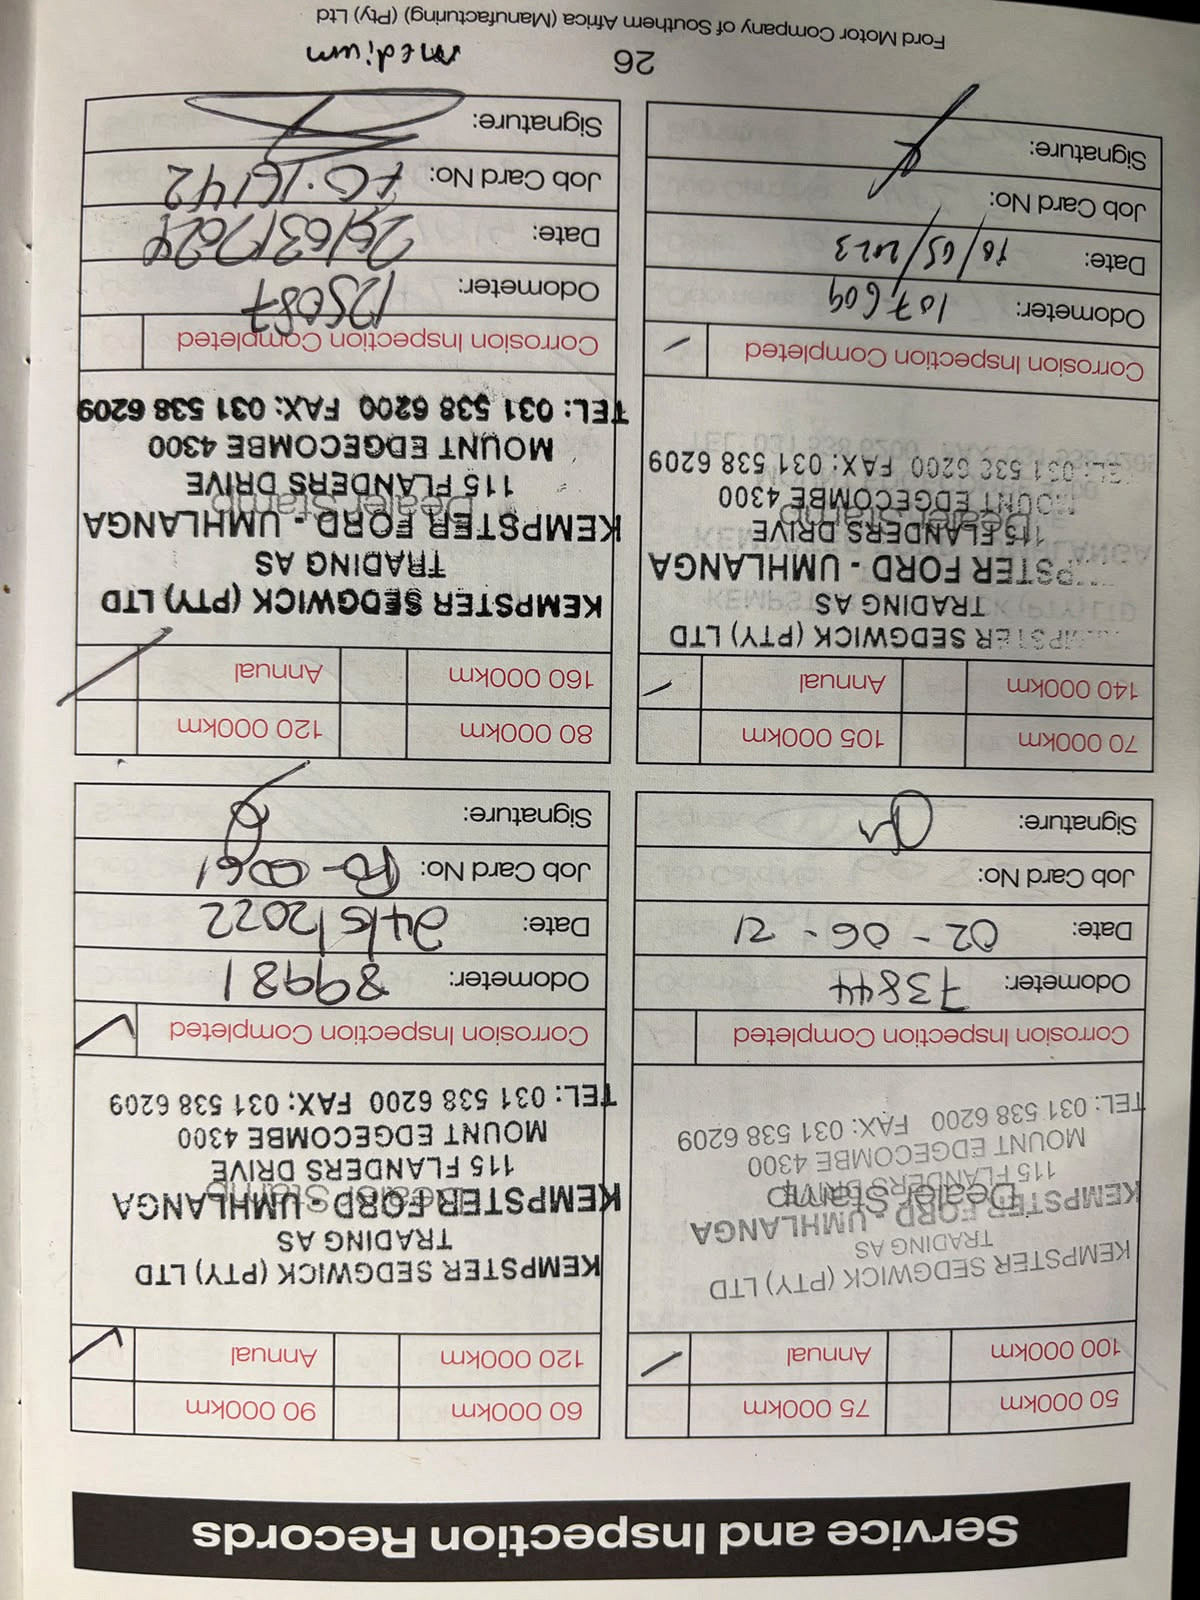 Service and Inspection Records
50 000km 75 000km
100 000km Annual
KEMPSTER SEDGWICK (PTY) LTD
TRADING AS
KEMPSTER FORD - UMHLANGA
Dealer Stamp
115 FLANDERS DRIVE
MOUNT EDGECOMBE 4300
TEL: 031 538 6200 FAX: 031 538 6209
Corrosion Inspection Completed
Odometer: 73844
Date: 02-06-21
Job Card No:
Signature:
60 000km 90 000km
120 000km Annual
KEMPSTER SEDGWICK (PTY) LTD
TRADING AS
KEMPSTER FORD - UMHLANGA
Dealer Stamp
115 FLANDERS DRIVE
MOUNT EDGECOMBE 4300
TEL: 031 538 6200 FAX: 031 538 6209
Corrosion Inspection Completed
Odometer: 89981
Date: 24/5/2022
Job Card No:
Signature:
70 000km 105 000km
140 000km Annual
KEMPSTER SEDGWICK (PTY) LTD
TRADING AS
KEMPSTER FORD - UMHLANGA
115 FLANDERS DRIVE
Dealer Stamp
MOUNT EDGECOMBE 4300
TEL: 031 538 6200 FAX: 031 538 6209
Corrosion Inspection Completed
Odometer: 107,609
Date: 18/05/2023
Job Card No:
Signature:
80 000km 120 000km
160 000km Annual
KEMPSTER SEDGWICK (PTY) LTD
TRADING AS
KEMPSTER FORD - UMHLANGA
Dealer Stamp
115 FLANDERS DRIVE
MOUNT EDGECOMBE 4300
TEL: 031 538 6200 FAX: 031 538 6209
Corrosion Inspection Completed
Odometer: 125087
Date: 26/03/2024
Job Card No:
Signature:
26
medium
Ford Motor Company of Southern Africa (Manufacturing) (Pty) Ltd